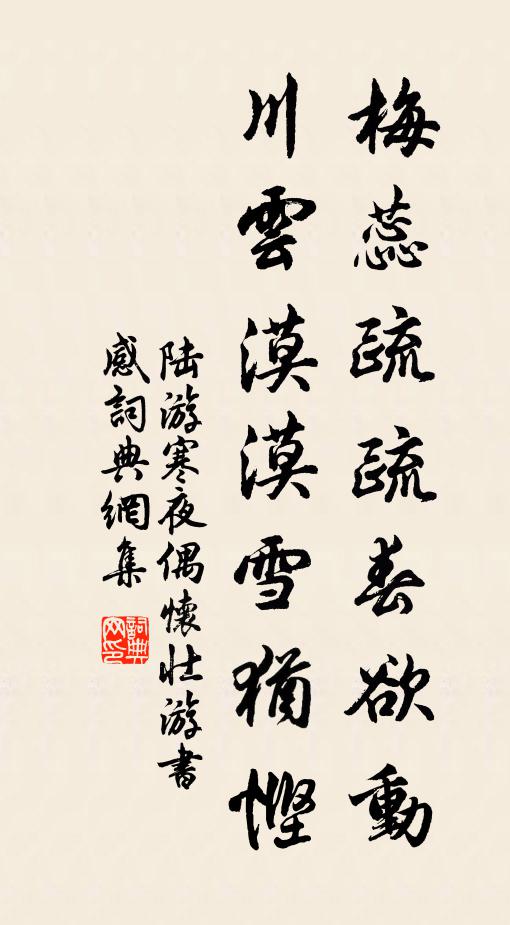 梅蕊疏疏春欲動
川雲漠漠雪猶慳
陸游寒夜偶懷壯游書
感詞典網集
詞典
网印